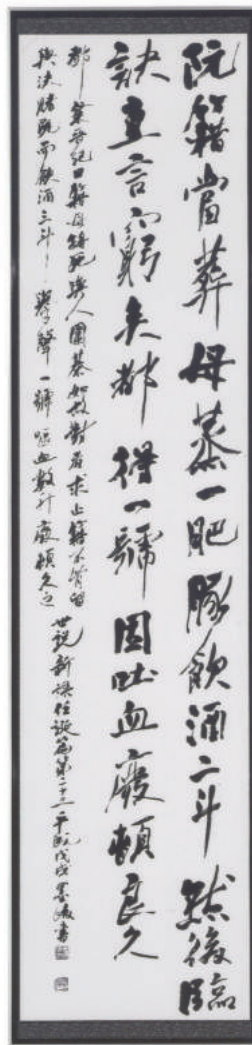 阮籍當葬母蒸一肥豚飲酒二斗然後臨
訣直言窮矣都得一號因吐血廢頓良久
鄧粲晋紀曰籍母将死與人圍棊如故對者求止籍不肯留
與決賭既而飲酒三斗舉聲一號嘔血數升廢頓久之 世説新語任誕篇第二十三 平成戊戌 墨 書